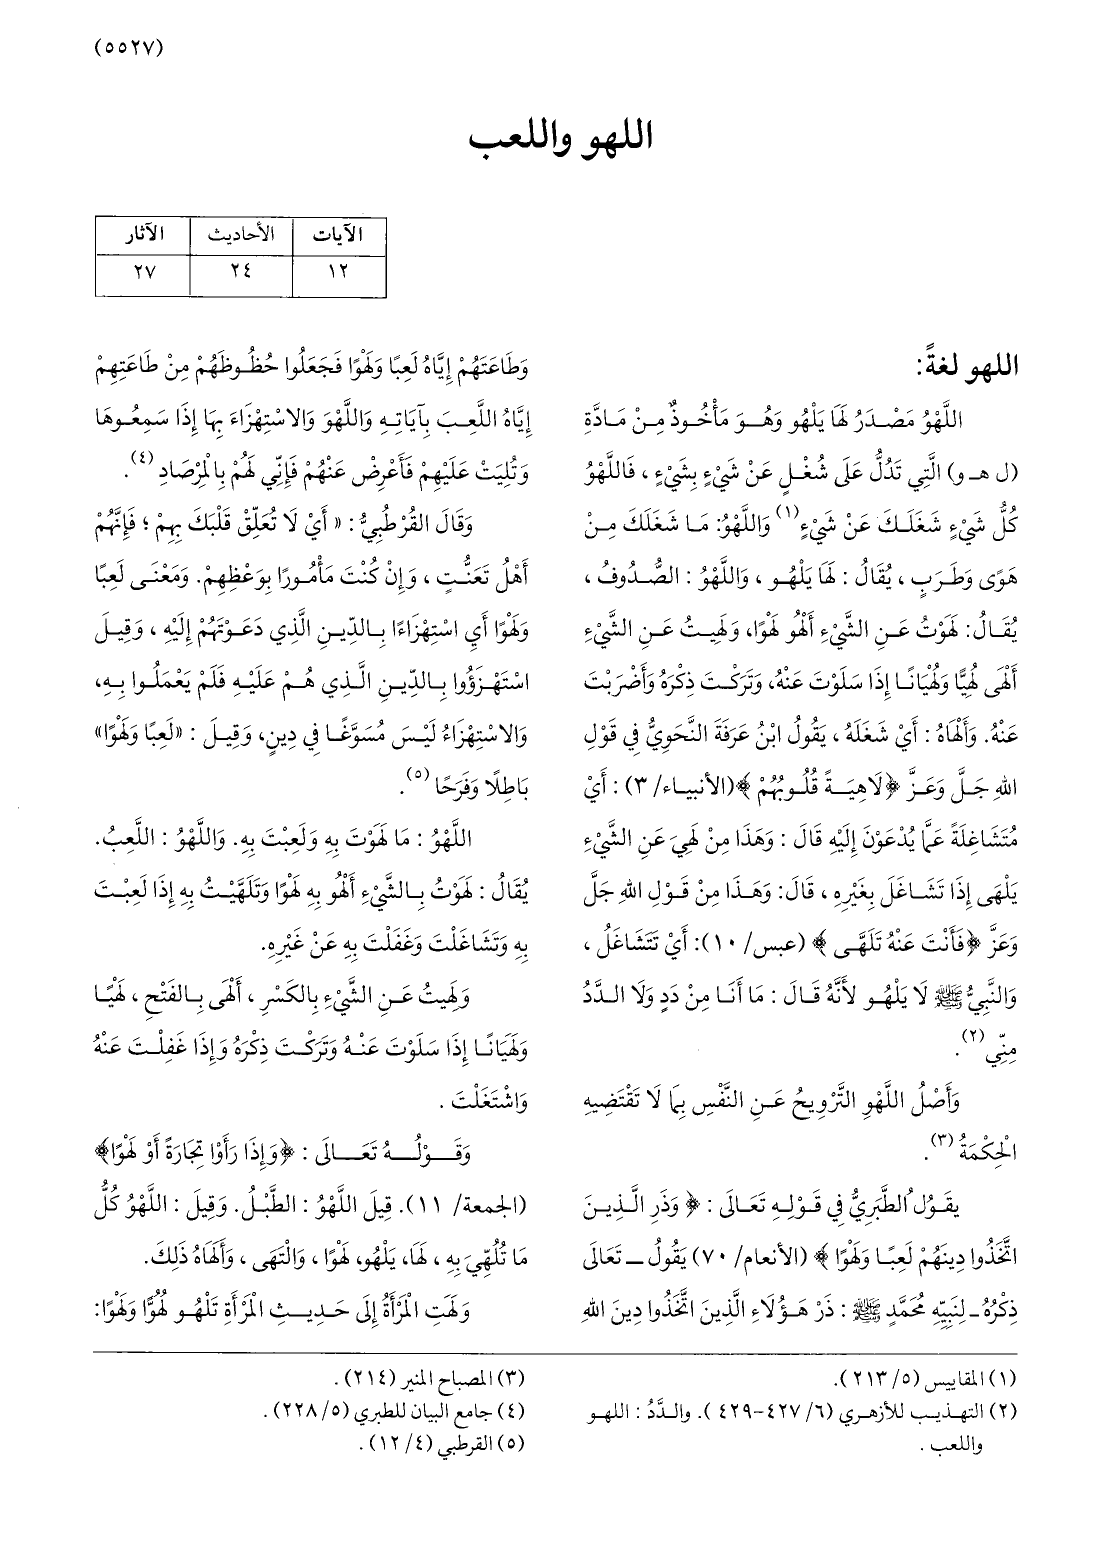 (٥٥٢٧)
اللهو واللعب
الآيات الأحاديث الآثار
١٢ ٢٤ ٢٧
اللهو لغةً:
اللَّهْوُ مَصْدَرُ لَهَا يَلْهُو وَهُوَ مَأْخُوذٌ مِنْ مَادَّةِ
(ل هـ و) الَّتِي تَدُلُّ عَلَى شُغْلٍ عَنْ شَيْءٍ بِشَيْءٍ ، فَاللَّهْوُ
كُلُّ شَيْءٍ شَغَلَكَ عَنْ شَيْءٍ (١) وَاللَّهْوُ: مَا شَغَلَكَ مِنْ
هَوًى وَطَرَبٍ ، يُقَالُ : لَهَا يَلْهُو ، وَاللَّهْوُ : الصُّدُوفُ ،
يُقَالُ: لَهَوْتُ عَنِ الشَّيْءِ أَلْهُو لَهْوًا، وَلَهِيتُ عَنِ الشَّيْءِ
أَلْهَى لُهِيًّا وَلُهْيَانًا إِذَا سَلَوْتَ عَنْهُ، وَتَرَكْتَ ذِكْرَهُ وَأَضْرَبْتَ
عَنْهُ. وَأَلْهَاهُ : أَيْ شَغَلَهُ ، يَقُولُ ابْنُ عَرَفَةَ النَّحَوِيُّ فِي قَوْلِ
اللهِ جَلَّ وَعَزَّ ﴿لَاهِيَةً قُلُوبُهُمْ﴾(الأنبياء/ ٣) : أَيْ
مُتَشَاغِلَةً عَمَّا يُدْعَوْنَ إِلَيْهِ قَالَ : وَهَذَا مِنْ لَهِيَ عَنِ الشَّيْءِ
يَلْهَى إِذَا تَشَاغَلَ بِغَيْرِهِ ، قَالَ: وَهَذَا مِنْ قَوْلِ اللهِ جَلَّ
وَعَزَّ ﴿فَأَنْتَ عَنْهُ تَلَهَّى ﴾ (عبس/ ١٠): أَيْ تَتَشَاغَلُ ،
وَالنَّبِيُّ ﷺ لَا يَلْهُو لأَنَّهُ قَالَ : مَا أَنَا مِنْ دَدٍ وَلَا الدَّدُ
مِنِّي (٢).
وَأَصْلُ اللَّهْوِ التَّرْوِيحُ عَنِ النَّفْسِ بِمَا لَا تَقْتَضِيهِ
الْحِكْمَةُ (٣).
يَقُولُ الطَّبَرِيُّ فِي قَوْلِهِ تَعَالَى : ﴿ وَذَرِ الَّذِينَ
اتَّخَذُوا دِينَهُمْ لَعِبًا وَلَهْوًا ﴾ (الأنعام/ ٧٠) يَقُولُ ــ تَعَالَى
ذِكْرُهُ ـ لِنَبِيِّهِ مُحَمَّدٍ ﷺ : ذَرْ هَؤُلَاءِ الَّذِينَ اتَّخَذُوا دِينَ اللهِ
وَطَاعَتَهُمْ إِيَّاهُ لَعِبًا وَلَهْوًا فَجَعَلُوا حُظُوظَهُمْ مِنْ طَاعَتِهِمْ
إِيَّاهُ اللَّعِبَ بِآيَاتِهِ وَاللَّهْوَ وَالاسْتِهْزَاءَ بِهَا إِذَا سَمِعُوهَا
وَتُلِيَتْ عَلَيْهِمْ فَأَعْرِضْ عَنْهُمْ فَإِنِّي لَهُمْ بِالْمِرْصَادِ (٤).
وَقَالَ القُرْطُبِيُّ : « أَيْ لَا تُعَلِّقْ قَلْبَكَ بِهِمْ ؛ فَإِنَّهُمْ
أَهْلُ تَعَنُّتٍ ، وَإِنْ كُنْتَ مَأْمُورًا بِوَعْظِهِمْ. وَمَعْنَى لَعِبًا
وَلَهْوًا أَيِ اسْتِهْزَاءًا بِالدِّينِ الَّذِي دَعَوْتَهُمْ إِلَيْهِ ، وَقِيلَ
اسْتَهْزَؤُوا بِالدِّينِ الَّذِي هُمْ عَلَيْهِ فَلَمْ يَعْمَلُوا بِهِ،
وَالاسْتِهْزَاءُ لَيْسَ مُسَوَّغًا فِي دِينٍ، وَقِيلَ : «لَعِبًا وَلَهْوًا»
بَاطِلًا وَفَرَحًا (٥).
اللَّهْوُ : مَا لَهَوْتَ بِهِ وَلَعِبْتَ بِهِ. وَاللَّهْوُ : اللَّعِبُ.
يُقَالُ : لَهَوْتُ بِالشَّيْءِ أَلْهُو بِهِ لَهْوًا وَتَلَهَّيْتُ بِهِ إِذَا لَعِبْتَ
بِهِ وَتَشَاغَلْتَ وَغَفَلْتَ بِهِ عَنْ غَيْرِهِ.
وَلَهِيتُ عَنِ الشَّيْءِ بِالكَسْرِ ، أَلْهَى بِالفَتْحِ ، لَهْيًا
وَلَهَيَانًا إِذَا سَلَوْتَ عَنْهُ وَتَرَكْتَ ذِكْرَهُ وَإِذَا غَفِلْتَ عَنْهُ
وَاشْتَغَلْتَ .
وَقَوْلُهُ تَعَالَى : ﴿وَإِذَا رَأَوْا تِجَارَةً أَوْ لَهْوًا﴾
(الجمعة/ ١١). قِيلَ اللَّهْوُ : الطَّبْلُ. وَقِيلَ : اللَّهْوُ كُلُّ
مَا تُلُهِّيَ بِهِ ، لَهَا، يَلْهُو، لَهْوًا ، وَالْتَهَى ، وَأَلْهَاهُ ذَلِكَ.
وَلَهَتِ الْمَرْأَةُ إِلَى حَدِيثِ الْمَرْأَةِ تَلْهُو لُهُوًّا وَلَهْوًا:
(١) المقاييس (٥/ ٢١٣).
(٢) التهذيب للأزهري (٦/ ٤٢٧-٤٢٩ ). والدَّدُ : اللهو
واللعب .
(٣) المصباح المنير (٢١٤) .
(٤) جامع البيان للطبري (٥/ ٢٢٨) .
(٥) القرطبي (٤/ ١٢) .